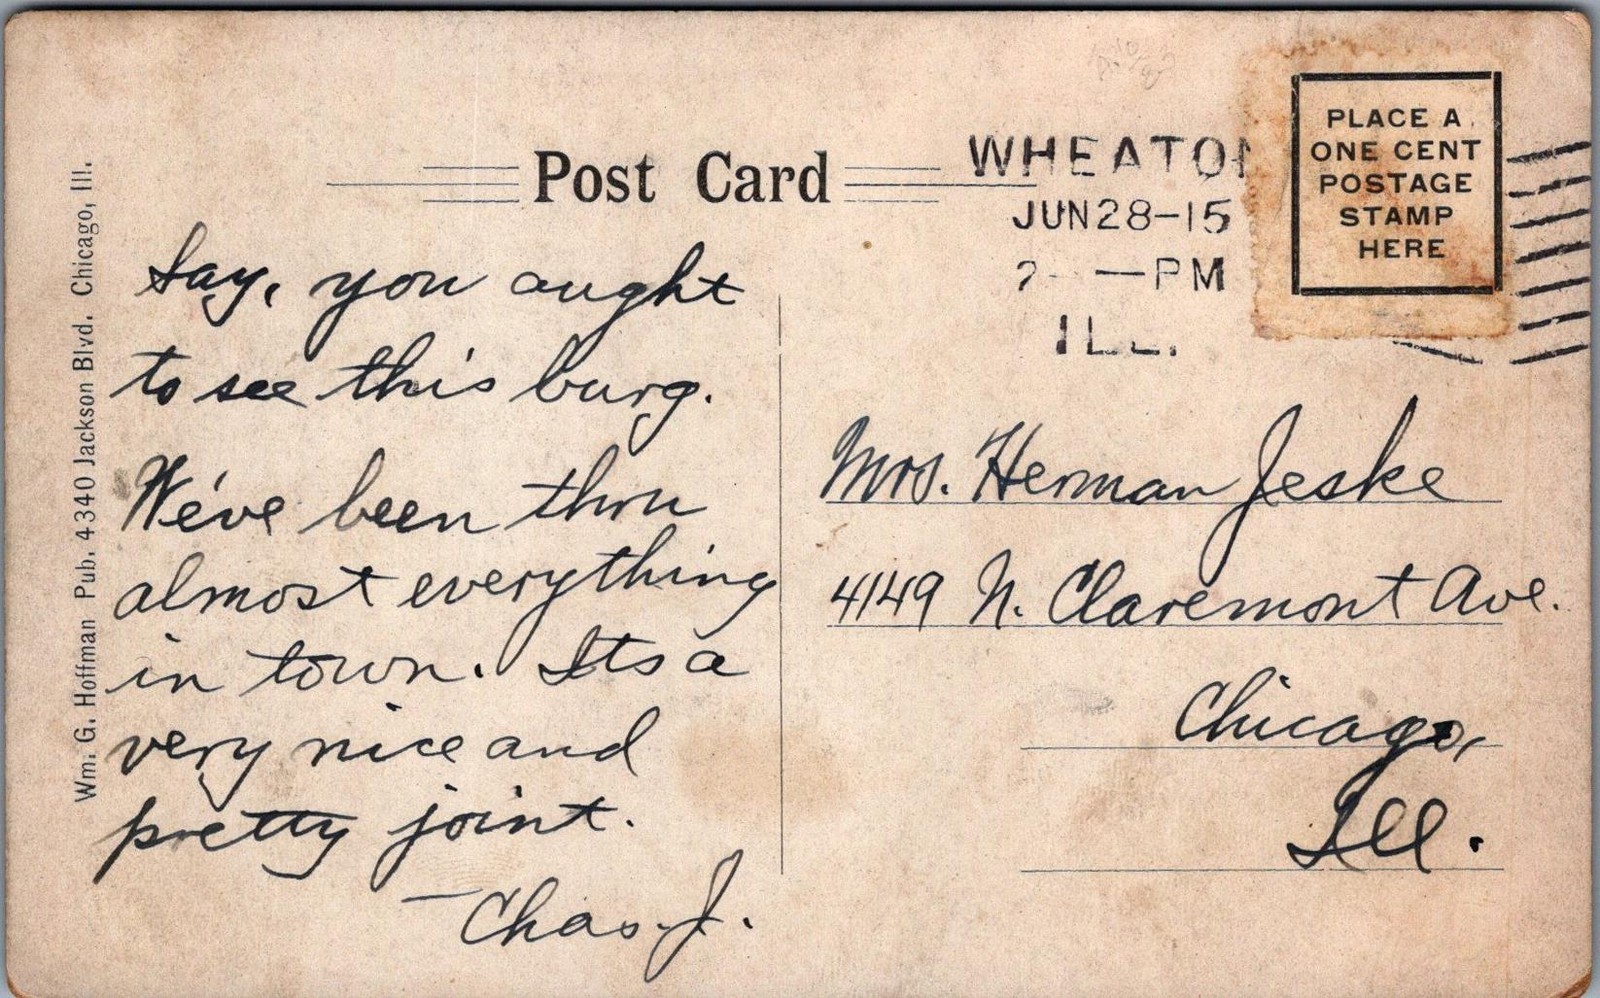 Post Card
WHEATON
JUN 28-15
-PM
ILL.
PLACE A
ONE CENT
POSTAGE
STAMP
HERE
Wm. G. Hoffman Pub. 4340 Jackson Blvd. Chicago, Ill.
Say, you aught
to see this burg.
We've been thru
almost everything
in town. Its a
very nice and
pretty joint.
- Chas. J.
Mrs. Herman Jeske
4149 N. Claremont Ave.
Chicago,
Ill.